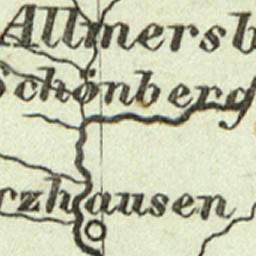 Allmersb
Schönberg
rzhausen